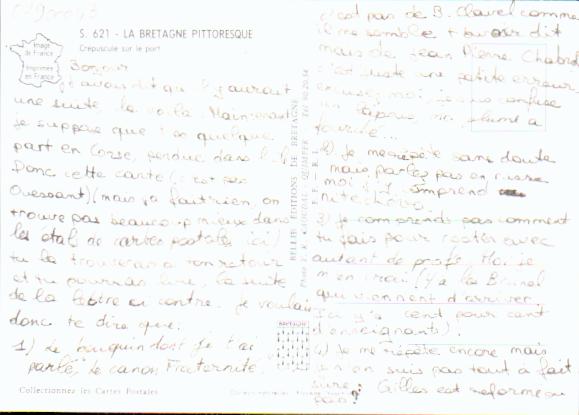 S. 621 - LA BRETAGNE PITTORESQUE
Crépuscule sur le port
Image de France
Imprimées en France
Bonjour
J't'avais dit qu'il y aurait
une suite la voilà. Maintenant
je suppose que t'es quelque
part en Corse, perdue dans l'
Donc cette carte (c'est pas
Ouessant) (mais ça fait rien, on
trouve pas beaucoup mieux dans
les étals de cartes postales ici)
tu la trouveras à ton retour
et tu pourras lire, la suite
de la lettre ci contre. Je voulais
donc te dire que.
1) Le bouquin dont je t'ai
parlé, le canon Fraternité
Collectionnez les Cartes Postales
BELLES EDITIONS DE BRETAGNE
QUIMPER
BRETAGNE
c'est pas de B. Clavel comme
il me semble t'avoir dit
mais de Jean Pierre Chabrol
c'est juste une petite erreur
excusez moi, je suis confuse
un lapsus, ma plume a
fourché...
2) Je me répète sans doute
mais parlez pas en russe
moi j'y comprend
nitchevo.
3) Je comprends pas comment
tu fais pour rester avec
autant de profs. Moi je
m'en irai (y'a la Brunel
qui viennent d'arriver,
ici y'a cent pour cent
d'enseignants).
4) Je me répète encore mais
j'en suis pas tout à fait
sûre: Gilles est réformé ou
pas?